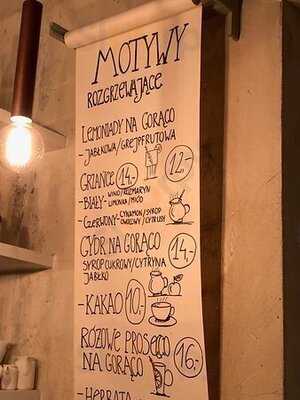 MOTYWY
ROZGRZEWAJĄCE
LEMONIADY NA GORĄCO
-JABŁKOWA/GREJPFRUTOWA
12,-
GRZAŃCE 14,-
-BIAŁY- WINO/ROZMARYN
LIMONKA/MIÓD
-CZERWONY- CYNAMON/SYROP
OWOCOWY/CYTRUSY
CYDR NA GORĄCO 14,-
SYROP CUKROWY/CYTRYNA
JABŁKO
-KAKAO 10,-
RÓŻOWE PROSECCO
NA GORĄCO 16,-
-HERBATA